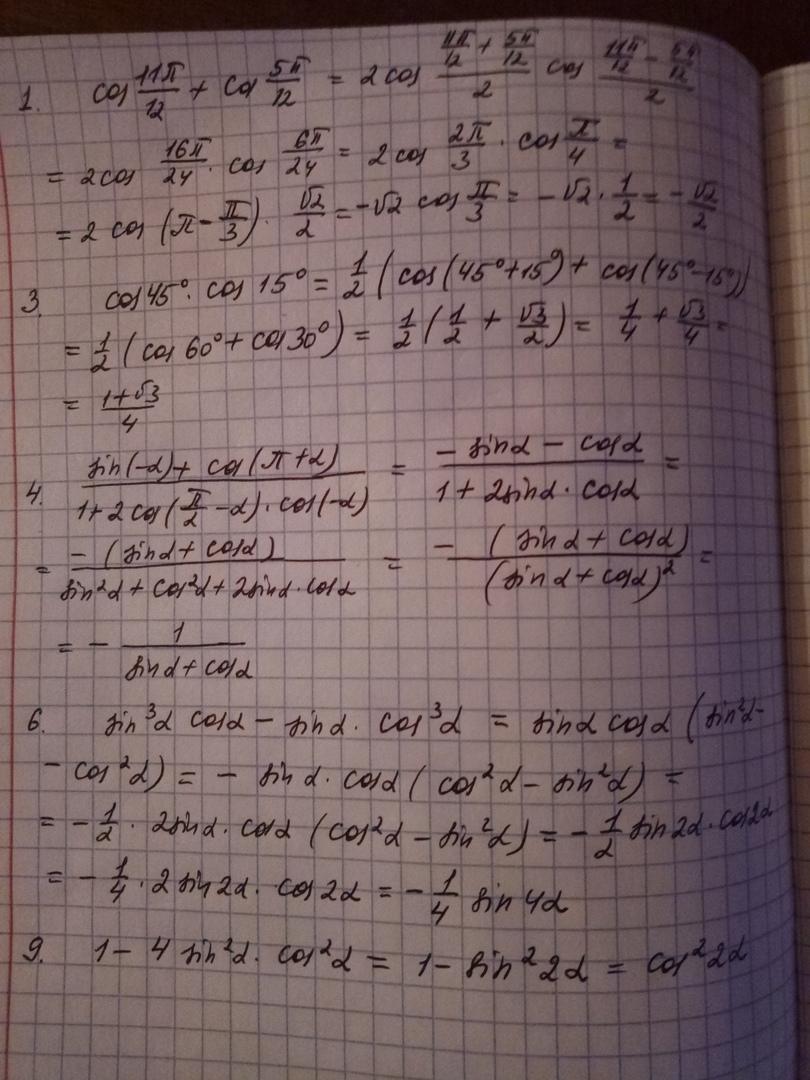 1. cos 11π/12 + cos 5π/12 = 2cos (11π/12 + 5π/12)/2 cos (11π/12 − 5π/12)/2
= 2cos 16π/24 · cos 6π/24 = 2cos 2π/3 · cos π/4 =
= 2 cos (π − π/3) · √2/2 = −√2 cos π/3 = −√2 · 1/2 = −√2/2
3. cos45° · cos 15° = 1/2 (cos(45°+15°) + cos(45°−15°))
= 1/2 (cos 60° + cos30°) = 1/2 (1/2 + √3/2) = 1/4 + √3/4 =
= (1+√3)/4
4. (sin(−α) + cos(π+α))/(1+2cos(π/2 − α) · cos(−α)) = (− sinα − cosα)/(1 + 2sinα · cosα) =
= −(sinα + cosα)/(sin²α + cos²α + 2sinα · cosα) = −(sinα + cosα)/(sinα + cosα)² =
= − 1/(sinα + cosα)
6. sin³α cosα − sinα · cos³α = sinα cosα (sin²α −
− cos²α) = − sinα · cosα (cos²α − sin²α) =
= −1/2 · 2sinα · cosα (cos²α − sin²α) = −1/2 sin2α · cos2α
= −1/4 · 2 sin2α · cos 2α = −1/4 sin 4α
9. 1 − 4 sin²α · cos²α = 1 − sin² 2α = cos² 2α